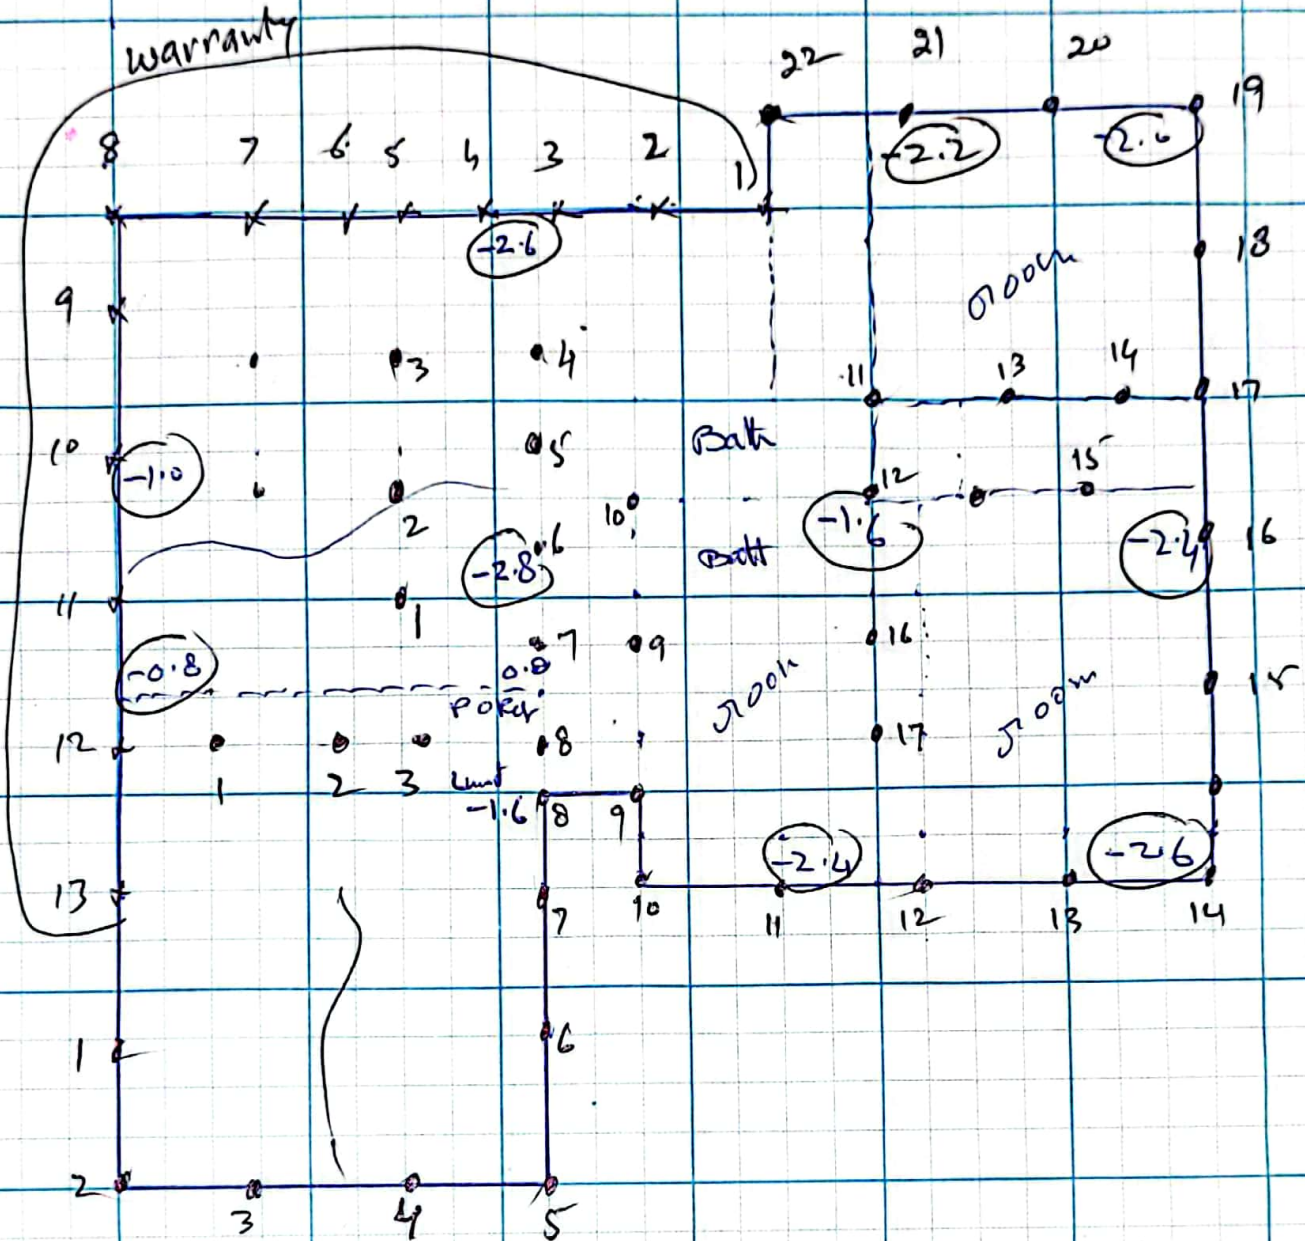 warranty
22 21 20 19
8 7 6 5 4 3 2 1
-2.2 -2.6
-2.6
18
9
room
3 4
11 13 14 17
10 5 Bath
-1.0 12 15
2 10
-1.6
-2.8 6 Batt -2.4 16
11
1
7 9 16
-0.8 0.0
room room 15
12 8 17
1 2 3
-1.6 8 9
-2.4 -2.6
13
7 10 11 12 13 14
1 6
2
3 4 5